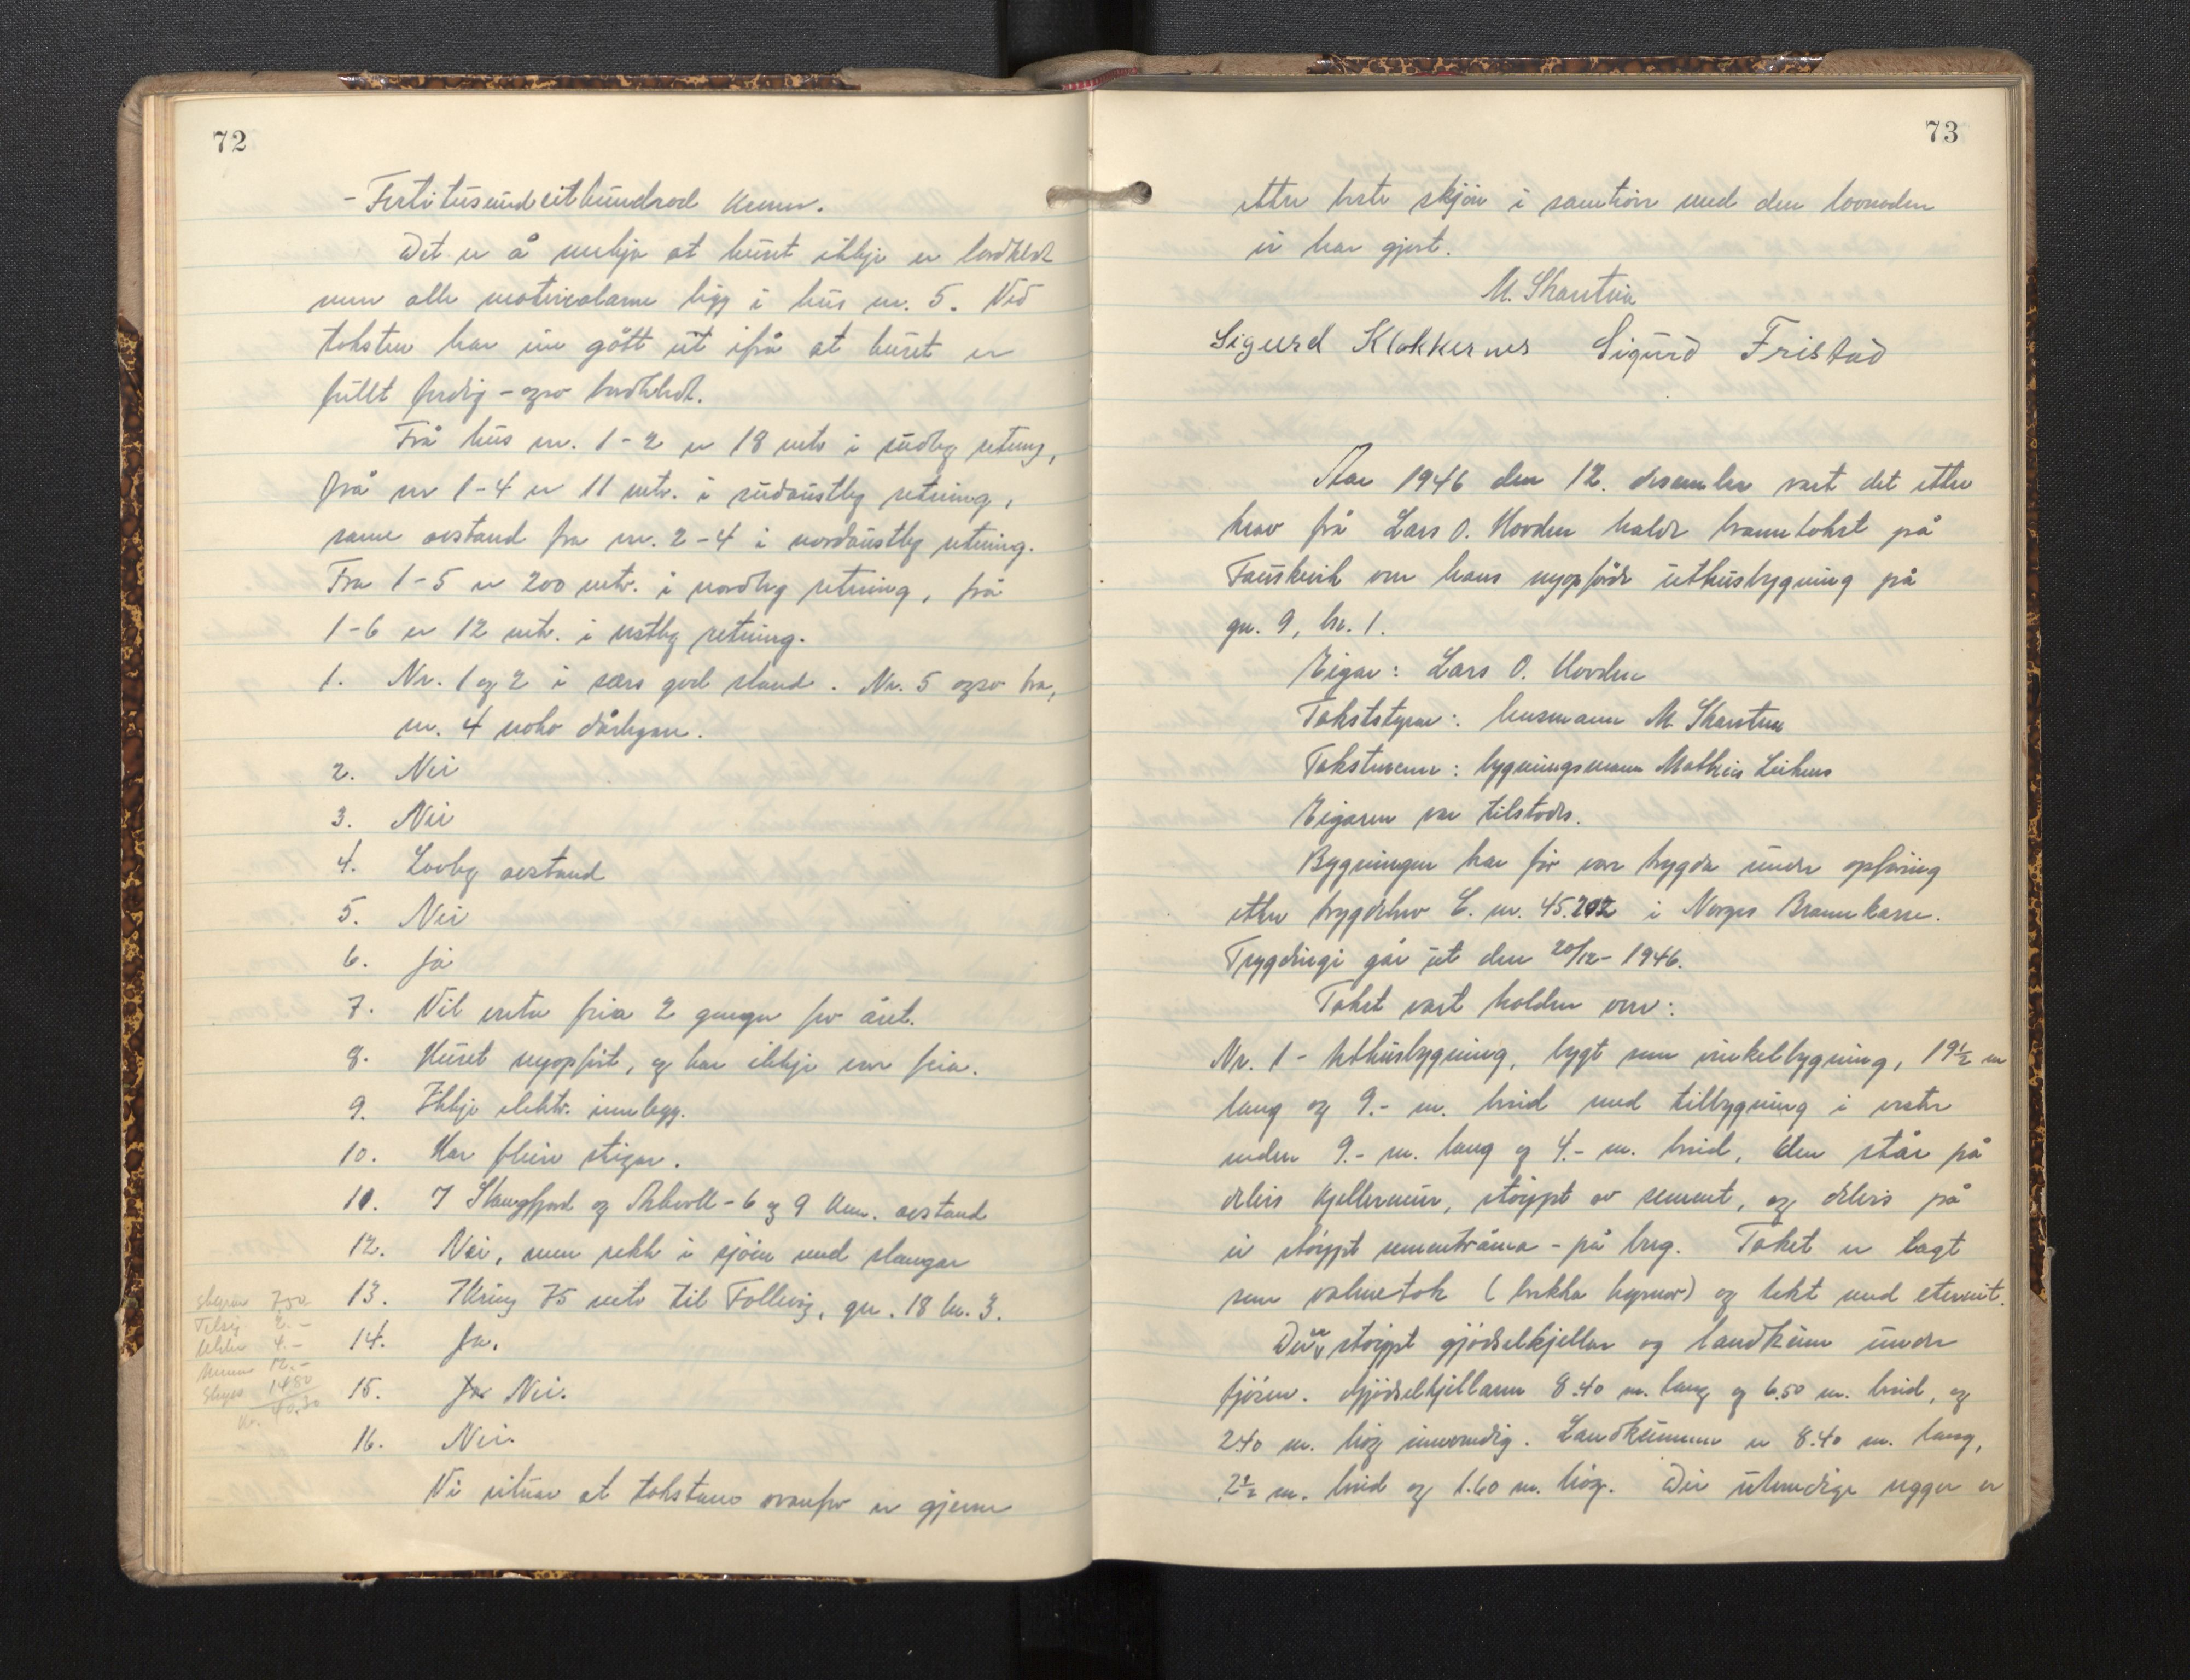 72
- Førtitusundeithundrad kroner.
Det er å merkja at huset ikkje er bordklædt
men alle materialarne ligg i hus nr. 5. Ved
taksten har ein gått ut ifrå at huset er
fullt ferdig - også bordklædt.
Frå hus nr. 1-2 er 18 metr i sudleg retning,
frå nr 1-4 er 11 metr. i sudaustleg retning,
same avstand fra nr. 2-4 i nordaustleg retning.
Fra 1-5 er 200 metr. i nordleg retning, frå
1-6 er 12 metr. i vestleg retning.
1. Nr. 1 og 2 i særs god stand. Nr. 5 også bra,
nr. 4 noko dårlegare.
2. Nei
3. Nei
4. Lovleg avstand
5. Nei
6. Ja
7. Vil verta feia 2 gonger for året.
8. Huset nyoppført, og har ikkje vore feia.
9. Ikkje elektr. innlegg.
10. Har fleire stigar.
11. I Stangfjord og Askvoll - 6 og 9 km. avstand
12. Nei, men rekk i sjøen med slangar
13. Kring 75 metr til Follevåg, gn. 18 bn. 3.
14. Ja.
15. Ja Nei.
16. Nei.
Vi vitnar at takstane ovanfor er gjerne
Styrar 7,50
2.-
4.-
Menn 12.-
Skyss 14.80
Kr. 40.30
73
etter beste skjøn i samhøve med den lovnaden
vi har gjort.
M. Skarstein
Sigurd Klokkernes Sigurd Fristad
Aar 1946 den 12. desember vart det etter
krav frå Lars O. Hovden halde branntakst på
Fauskevik over hans nyoppførde uthusbygning på
gn. 9, bn. 1.
Eigar: Lars O. Hovden
Takststyrar: lensmann M. Skarstein
Takstmenn: bygningsmann Mathias Leiknes
Eigaren var tilstades.
Bygningen har før vore trygda under oppføring
etter trygdebrev L. nr. 45.202 i Norges Brannkasse.
Trygdingi går ut den 20/12- 1946.
Takst vart halden over:
Nr. 1 - Uthusbygning, bygt som vinkelbygning, 19 1/2 m
lang og 9.- m. breid med tilbygning i vestre
enden 9.- m. lang og 4.- m. breid, den står på
delvis kjellermur, støypt av sement, og delvis på
ei støypt sementråma - på berg. Taket er lagt
som valmetak (brekka hyrnor) og tekt med eternit.
Der er støypt gjødselkjellar og landkum under
fjøsen. Gjødselkjellaren 8.40 m. lang og 6.50 m. breid, og
2.40 m. høg innvendig. Landkummen er 8.40 m. lang,
2 1/2 m. breid og 1.60 m. høg. Dei utvendige vegger er